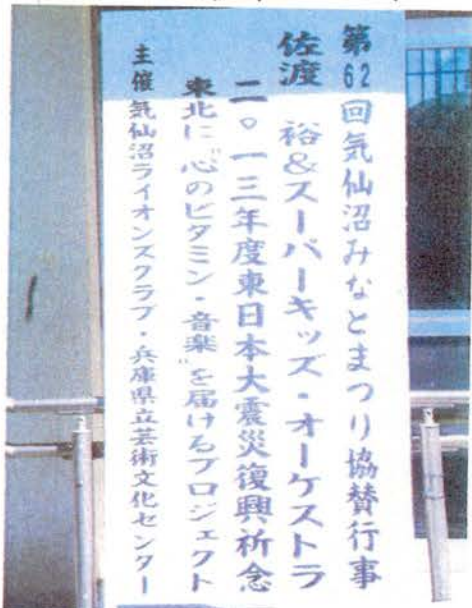 第62回気仙沼みなとまつり協賛行事
佐渡 裕&スーパーキッズ・オーケストラ
二〇一三年度東日本大震災復興祈念
東北に"心のビタミン・音楽"を届けるプロジェクト
主催 気仙沼ライオンズクラブ・兵庫県立芸術文化センター